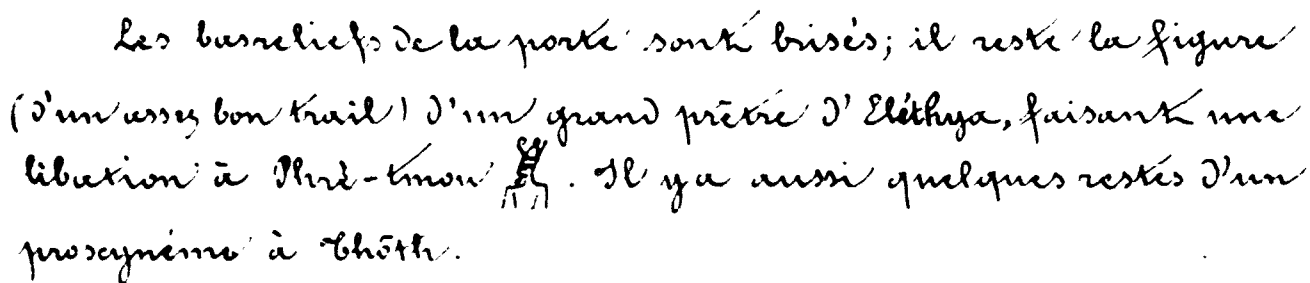 Les basreliefs de la porte sont brisés; il reste la figure
(d'un assez bon trail) d'un grand prêtre d'Eléthya, faisant une
libation à Phrè-tmou . Il y a aussi quelques restes d'un
proscynéme à Thôth.